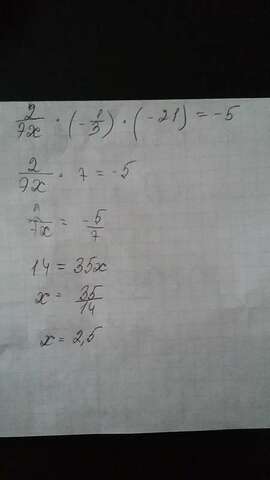 2/7x · (-1/3) · (-21) = -5
2/7x · 7 = -5
2/7x = -5/7
14 = 35x
x = 35/14
x = 2,5